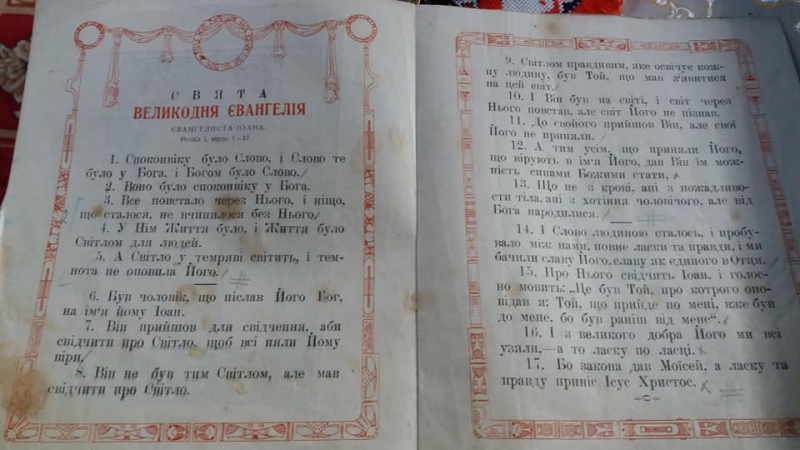 СВЯТА
ВЕЛИКОДНЯ ЄВАНГЕЛІЯ
ЄВАНГЕЛИСТА ІОАНА.
Розділ 1, вірші 1—17.
1. Споконвіку було Слово, і Слово те
було у Бога, і Богом було Слово.
2. Воно було споконвіку у Бога.
3. Все повстало через Нього, і ніщо,
що сталося, не вчинилося без Нього.
4. У Нім Життя було, і Життя було
Світлом для людей.
5. А Світло у темряві світить, і тем-
нота не оповила Його.
6. Був чоловік, що післав Його Бог,
на ім'я йому Іоан.
7. Він прийшов для свідчення, аби
свідчити про Світло, щоб всі няли Йому
віри.
8. Він не був тим Світлом, але мав
свідчити про Світло.
9. Світлом правдивим, яке освічує кож-
ну людину, був Той, що мав з'явитися
на цей світ.
10. І Він був на світі, і світ через
Нього повстав, але світ Його не пізнав.
11. До свойого прийшов Він, але свої
Його не приняли.
12. А тим усім, що приняли Його,
що вірують в ім'я Його, дав Він їм мож-
ність синами Божими стати,
13. Що не з крові, ані з пожадливо-
сти тіла, ані з хотіння чоловічого, але від
Бога народилися.
14. І Слово людиною сталось, і пробу-
вало між нами, повне ласки та правди, і ми
бачили славу Його, славу як єдиного в Отця.
15. Про Нього свідчить Іоан, і голос-
но мовить: „Це був Той, про котрого опо-
відав я: Той, що прийде по мені, вже був
до мене, бо був раніш від мене“.
16. І з великого добра Його ми всі
узяли,—а то ласку по ласці.
17. Бо закона дав Моісей, а ласку та
правду приніс Ісус Христос.